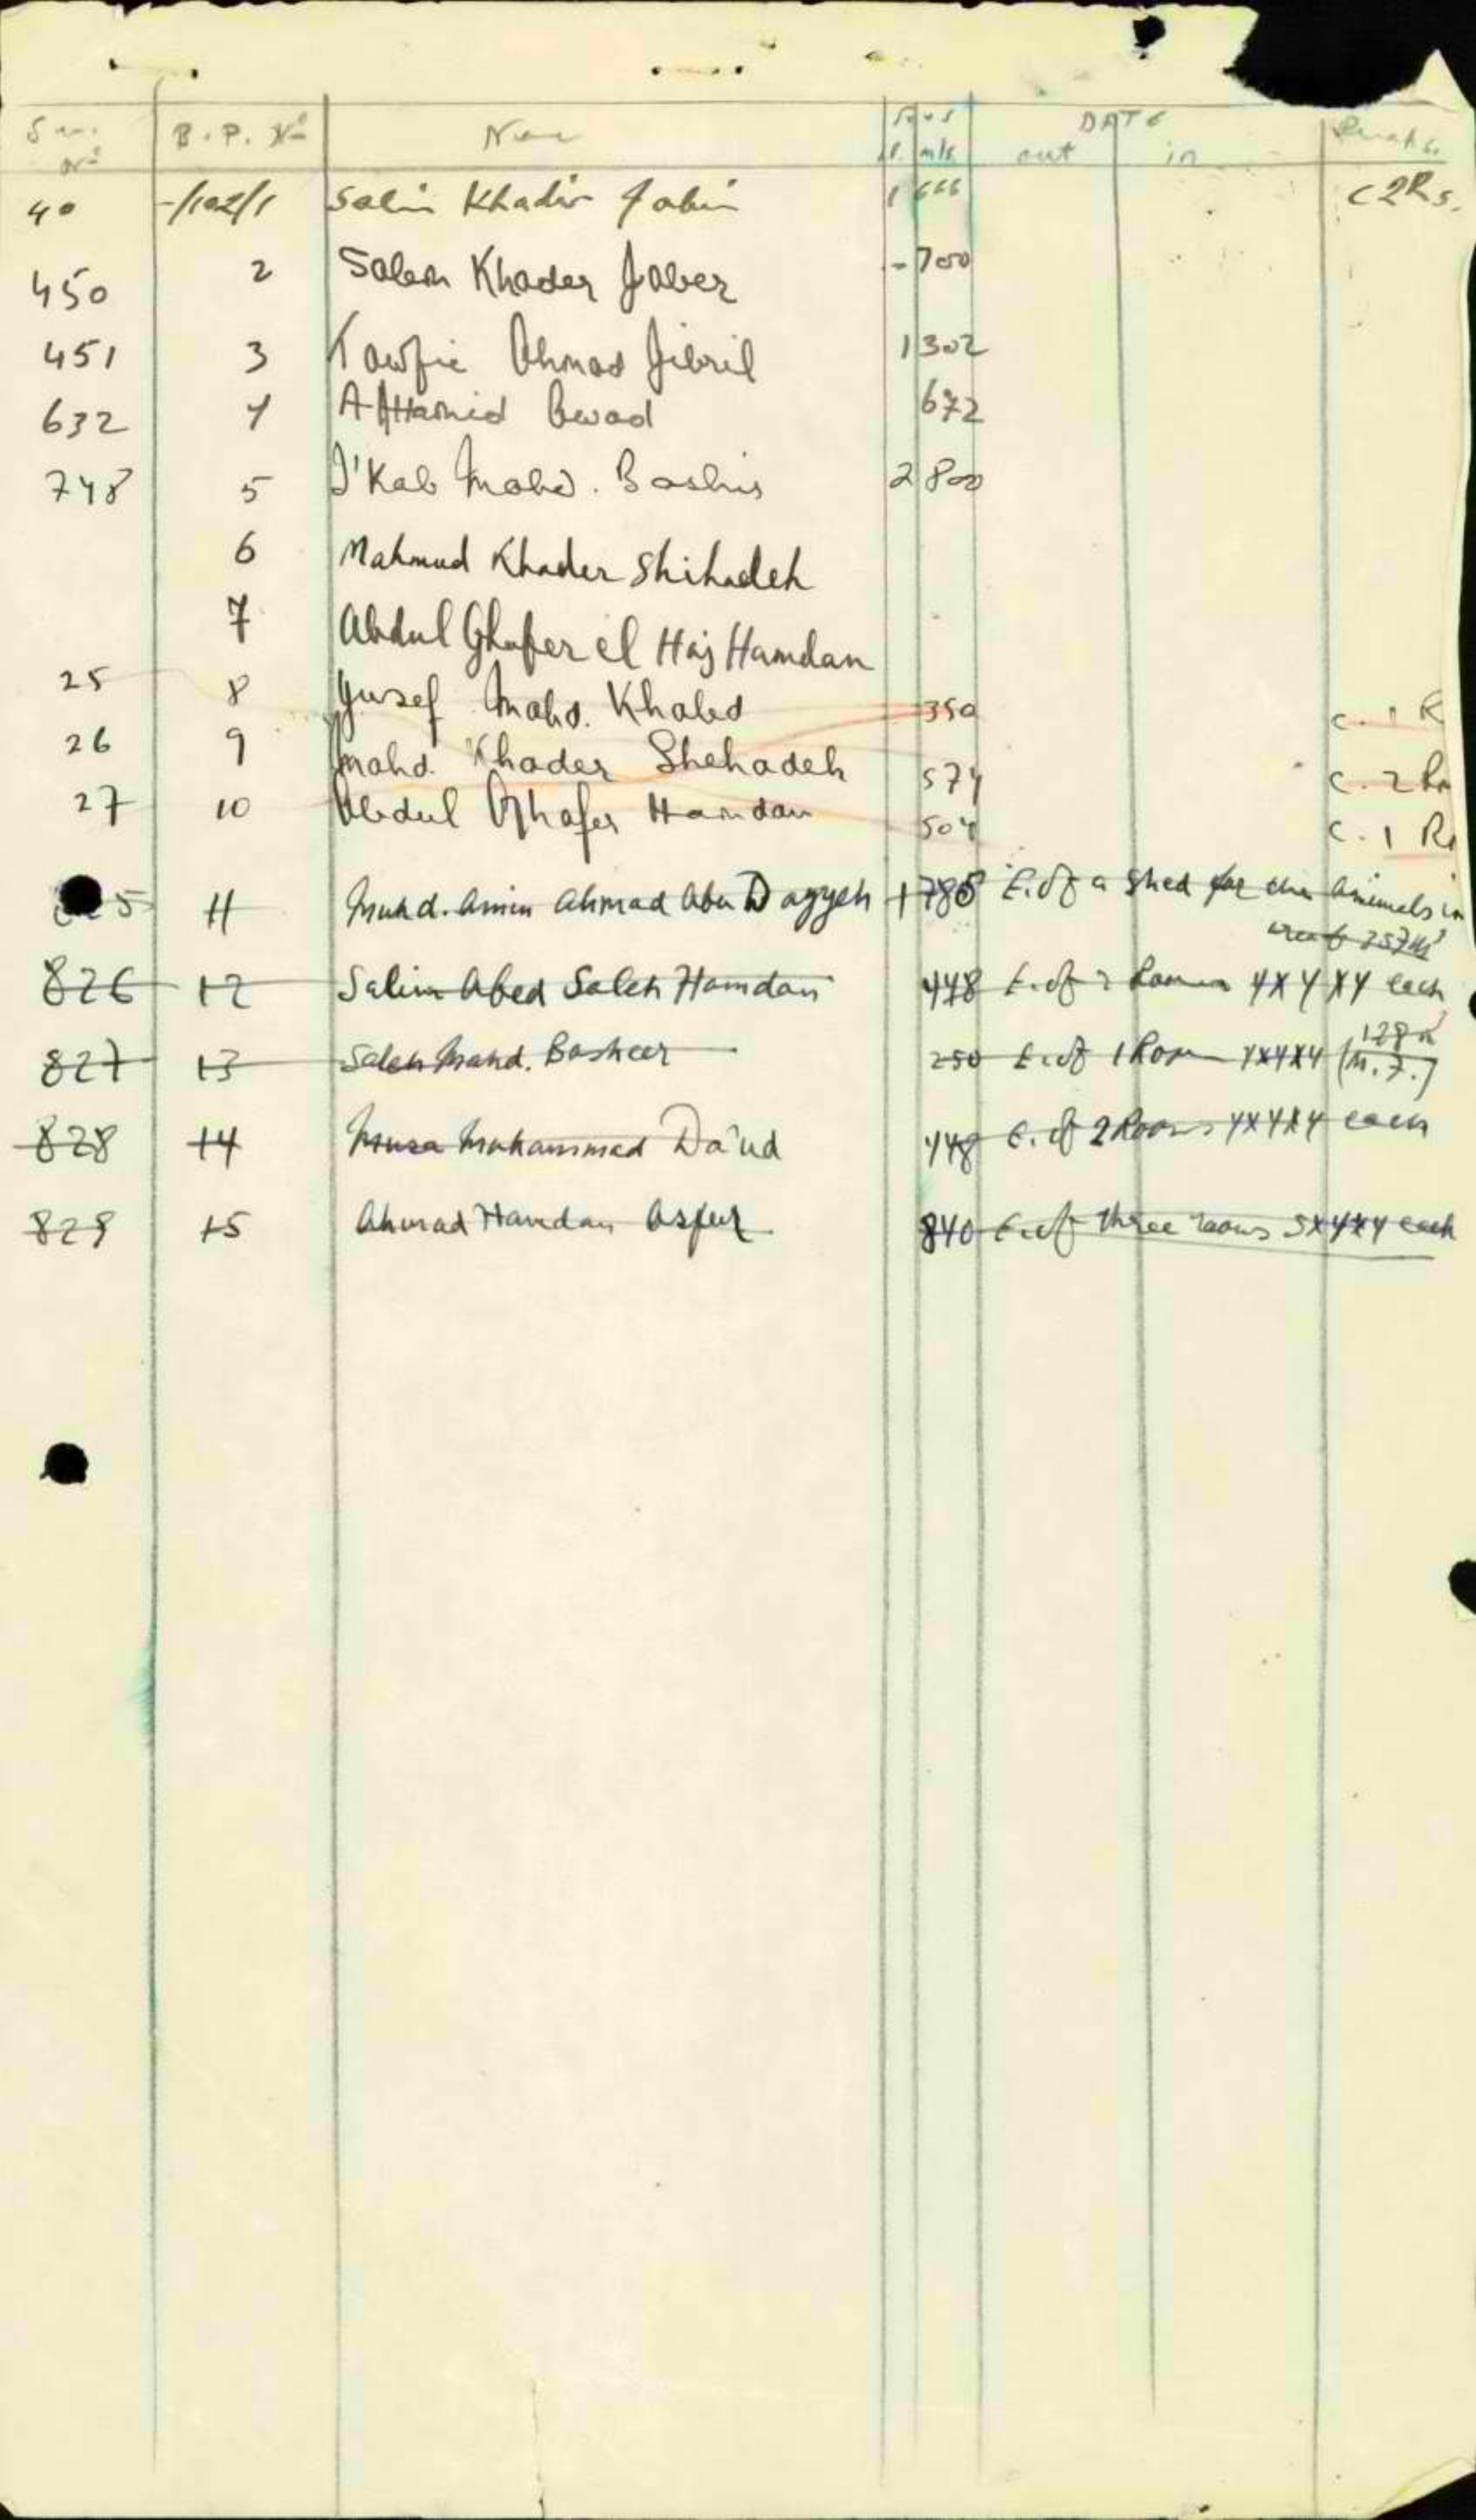 B.P. Nº
mls DATE
out in
40 -/102/1 Salim Khadir Jabir 1 666 C 2 Rs.
450 2 Salem Khader Jaber - 700
451 3 Tawfic Ahmad Jibril 1 302
632 4 A/Hamid Awad 672
748 5 Mohd. 2 800
6 Mahmud Khader Shihadeh
7 Abdul Ghafer el Haj Hamdan
25 8 Yusef Mohd. Khaled 350 C. 1 R
26 9 Mohd. Khader Shehadeh 574 C. 2 Rm
27 10 Abdul Ghafer Hamdan 504 C. 1 R
5 11 Muhd. Amin Ahmad Abu Dayyeh 1 785 E. of a Shed for the animals in
257 m³
826 12 Salim Abed Saleh Hamdan 448 E. of 2 Rooms 4x4x4 each
128 m³
827 13 Saleh Mohd. Basheer 250 E. of 1 Room 4x4x4
828 14 Musa Muhammad Da'ud 448 E. of 2 Rooms 4x4x4 each
829 15 Ahmad Hamdan Asfur 840 E. of three rooms 5x4x4 each